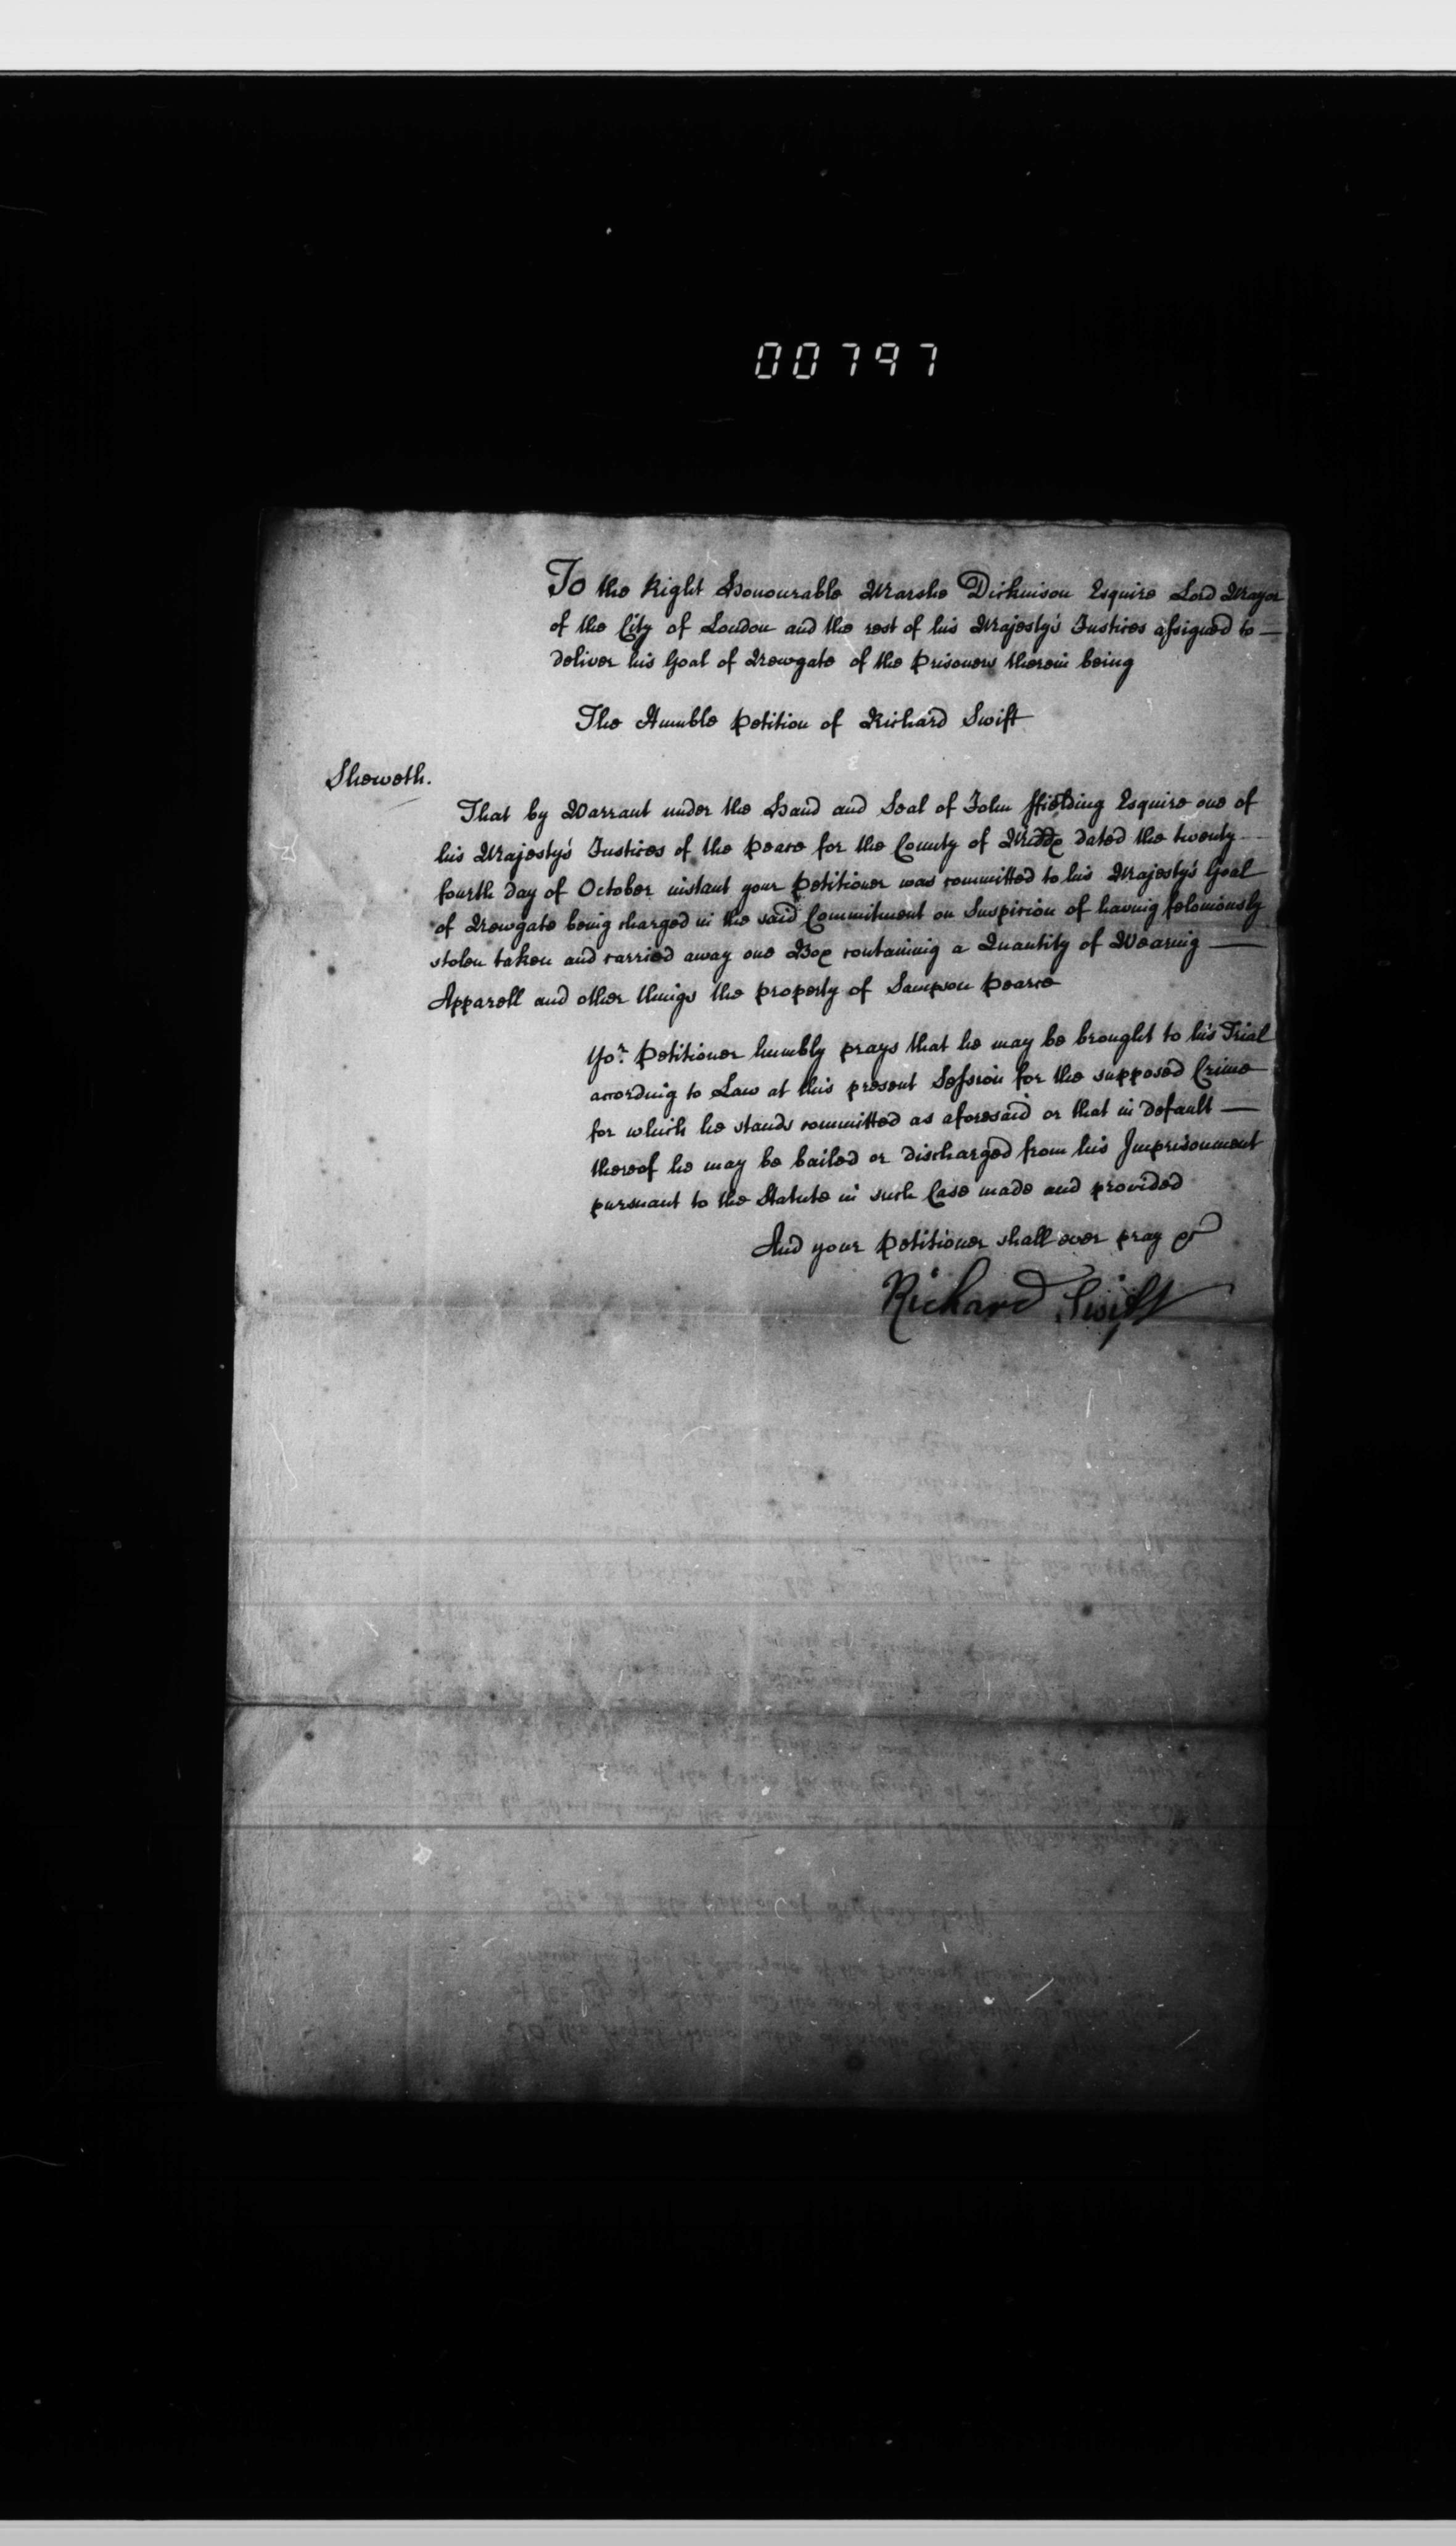 00797
To the Right Honourable Marshe Dickinson Esquire Lord Mayor
of the City of London and the rest of his Majesty's Justices assigned to —
deliver his Goal of Newgate of the Prisoners therein being
The Humble Petition of Richard Swift
Sheweth.
That by Warrant under the Hand and Seal of John ffielding Esquire one of
his Majesty's Justices of the Peace for the County of Middx dated the twenty
fourth day of October instant your Petitioner was committed to his Majesty's Goal
of Newgate being charged in the said Commitment on Suspicion of having feloniously
stolen taken and carried away one Box containing a Quantity of Wearing —
Apparell and other things the property of Sampson Pearce
Yor. Petitioner humbly prays that he may be brought to his Trial
according to Law at this present Session for the supposed Crime
for which he stands committed as aforesaid or that in default —
thereof he may be bailed or discharged from his Imprisonment
pursuant to the Statute in such Case made and provided
And your Petitioner shall ever pray &c
Richard Swift